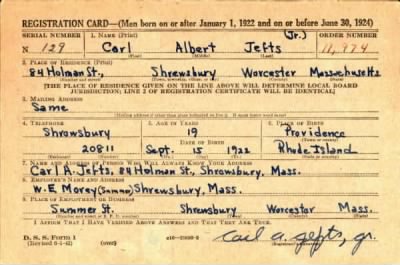 REGISTRATION CARD—(Men born on or after January 1, 1922 and on or before June 30, 1924)
SERIAL NUMBER 1. NAME (Print) (Jr.) ORDER NUMBER
N 129 Carl Albert Jefts 11,974
(First) (Middle) (Last)
2. PLACE OF RESIDENCE (Print)
84 Holman St., Shrewsbury Worcester Massachusetts
[THE PLACE OF RESIDENCE GIVEN ON THE LINE ABOVE WILL DETERMINE LOCAL BOARD
JURISDICTION; LINE 2 OF REGISTRATION CERTIFICATE WILL BE IDENTICAL]
3. MAILING ADDRESS
Same
[Mailing address if other than place indicated on line 2. If same insert word same]
4. TELEPHONE 5. AGE IN YEARS 6. PLACE OF BIRTH
Shrewsbury 19 Providence
DATE OF BIRTH
20811 Sept. 15 1922 Rhode Island
7. NAME AND ADDRESS OF PERSON WHO WILL ALWAYS KNOW YOUR ADDRESS
Carl A. Jefts, 84 Holman St., Shrewsbury, Mass.
8. EMPLOYER'S NAME AND ADDRESS
W. E. Morey (Summo) Shrewsbury, Mass.
9. PLACE OF EMPLOYMENT OR BUSINESS
Summer St. Shrewsbury Worcester Mass.
I AFFIRM THAT I HAVE VERIFIED ABOVE ANSWERS AND THAT THEY ARE TRUE.
D. S. S. Form 1
(Revised 6-1-42) (over)
Carl A. Jefts, Jr.